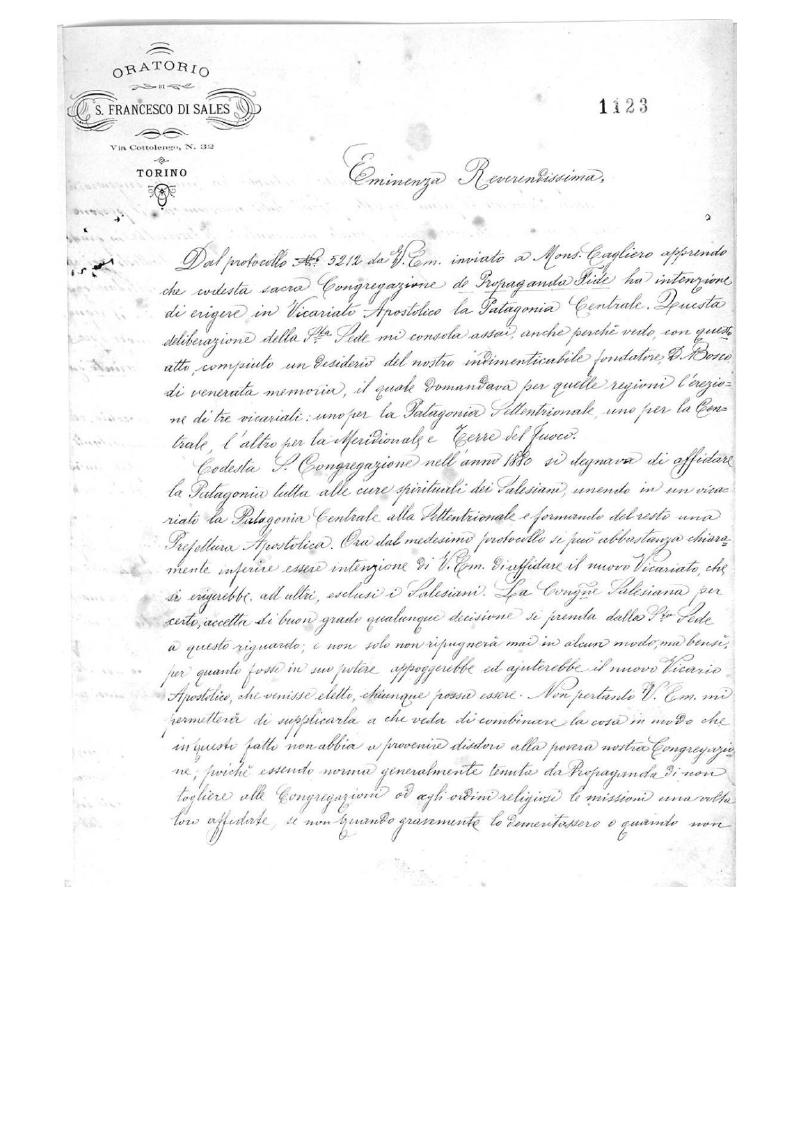 ORATORIO
DI
S. FRANCESCO DI SALES
Via Cottolengo, N. 32
TORINO
1123
Eminenza Reverendissima,
Dal protocollo No. 5212 da V. Em. inviato a Mons. Cagliero apprendo
che codesta sacra Congregazione de Propaganda Fide ha intenzione
di erigere in Vicariato Apostolico la Patagonia Centrale. Questa
deliberazione della Sta Sede mi consola assai, anche perchè vedo, con questo
atto, compiuto un desiderio del nostro indimenticabile fondatore, D. Bosco
di venerata memoria, il quale domandava per quelle regioni l'erezio-
ne di tre vicariati: uno per la Patagonia Settentrionale, uno per la Cen-
trale, l'altro per la Meridionale e Terre del Fuoco.
Codesta S. Congregazione nell'anno 1880 si degnava di affidare
la Patagonia tutta alle cure spirituali dei Salesiani, unendo in un vica-
riato la Patagonia Centrale alla Settentrionale e formando del resto una
Prefettura Apostolica. Ora dal medesimo protocollo si può abbastanza chiara-
mente inferire essere intenzione di V. Em. di affidare il nuovo Vicariato, che
si erigerebbe, ad altri, esclusi i Salesiani. La Congne Salesiana per
certo, accetta di buon grado qualunque decisione si prenda dalla Sta Sede
a questo riguardo; e non solo non ripugnerà mai in alcun modo, ma bensì,
per quanto fosse in suo potere appoggerebbe ed ajuterebbe il nuovo Vicario
Apostolico, che venisse eletto, chiunque possa essere. Non pertanto V. Em. mi
permetterà di supplicarla a che veda di combinare la cosa in modo che
in questo fatto non abbia a provenire disdoro alla povera nostra Congregazio-
ne; poichè essendo norma generalmente tenuta da Propaganda di non
togliere alle Congregazioni od agli ordini religiosi le missioni una volta
loro affidate, se non quando gravemente lo demeritassero o quando non